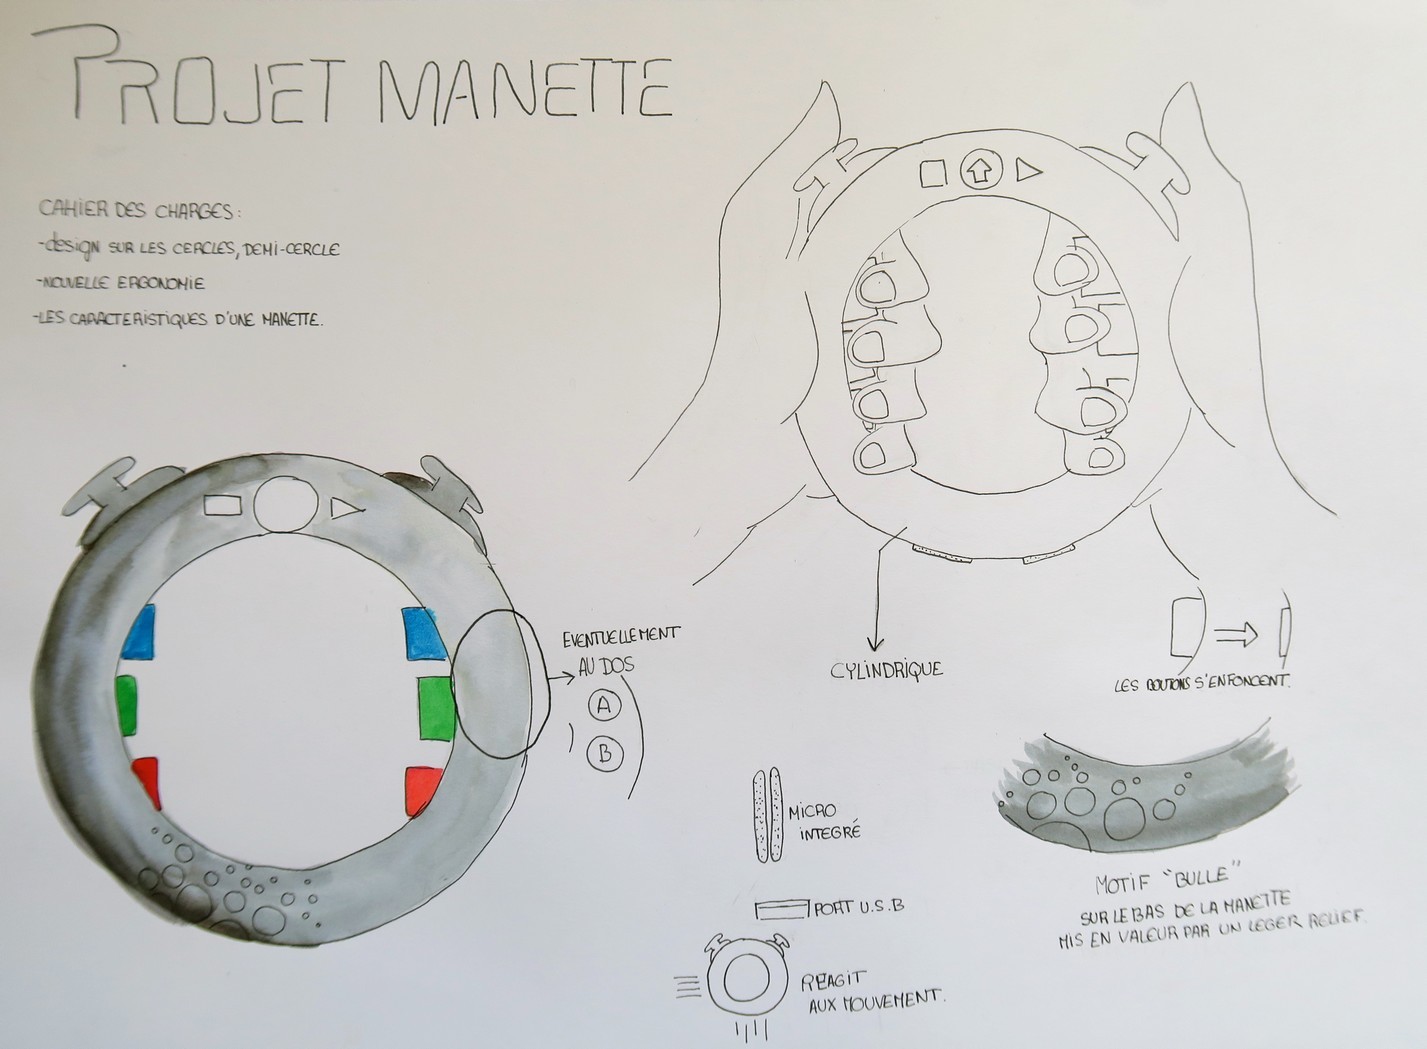 PROJET MANETTE
CAHIER DES CHARGES :
-design SUR LES CERCLES, DEMI-CERCLE
-NOUVELLE ERGONOMIE
-LES CARACTERISTIQUES D'UNE MANETTE.
EVENTUELLEMENT
AU DOS
A
B
CYLINDRIQUE
LES BOUTONS S'ENFONCENT.
MICRO
INTEGRÉ
PORT U.S.B
REAGIT
AUX MOUVEMENT.
MOTIF "BULLE"
SUR LE BAS DE LA MANETTE
MIS EN VALEUR PAR UN LEGER RELIEF.